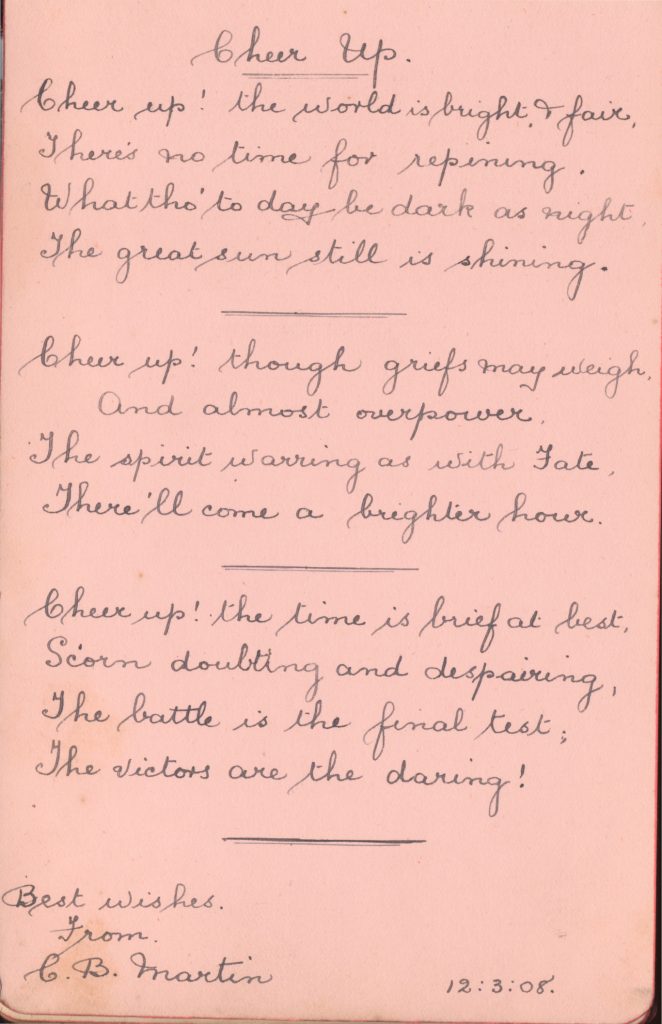 Cheer Up.
Cheer up! the world is bright & fair,
There's no time for repining.
What tho' to day be dark as night,
The great sun still is shining.
Cheer up! though griefs may weigh,
And almost overpower,
The spirit warring as with Fate,
There'll come a brighter hour.
Cheer up! the time is brief at best,
Scorn doubting and despairing,
The battle is the final test;
The victors are the daring!
Best wishes.
From.
C. B. Martin
12:3:08.